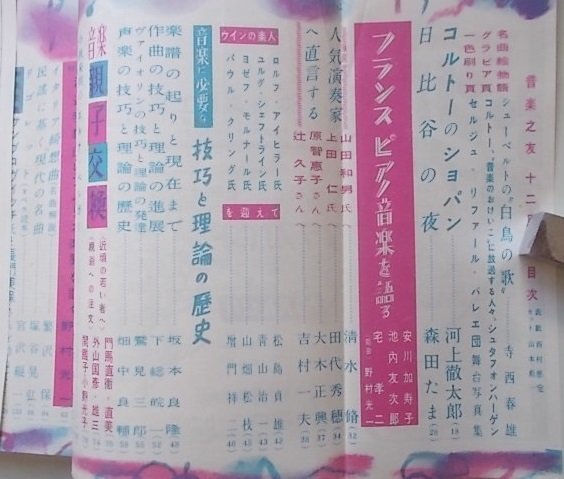 音楽之友 十二月 目次
名曲絵物語 シューベルトの“白鳥の歌” 寺西春雄
グラビア頁 コルトー、“音楽のおけいこ”に放送する人々、シュタフォンハーゲン
一色刷り頁 セルジュ・リファール・バレエ団舞台写真集
コルトーのショパン 河上徹太郎 (18)
日比谷の夜 森田たま (28)
フランスピアノ音楽を語る
安川加寿子
池内友次郎
宅孝二
野村光一
人気演奏家へ直言する
山田和男氏へ 清水脩 (32)
上田仁氏へ 田代秀穂 (34)
原智恵子さんへ 大木正興 (37)
辻久子さんへ 吉村一夫 (38)
ウインの楽人を迎えて
ロルフ・アイヒラー氏 松島貞雄 (42)
ユルグ・シェフトライン氏 青山治一 (43)
ヨゼフ・モルナール氏 山畑松枝 (43)
パウル・クリング氏 増門祥二 (40)
音楽に必要な技巧と理論の歴史
楽譜の起りと現在まで 坂本良隆 (48)
作曲の技巧と理論の進展 下総皖一 (52)
ヴァイオリンの技巧と理論の発達 鷲見三郎 (55)
声楽の技巧と理論の歴史 畑中良輔
楽語 親子交換
近頃の若い者へ
親爺への注文
門馬直衛・直美
外山国彦・雄三
関鑑子・小野光子
野村光一
民謡に基く現代の名曲
繁沢保
塚谷晃弘
宮沢縦一